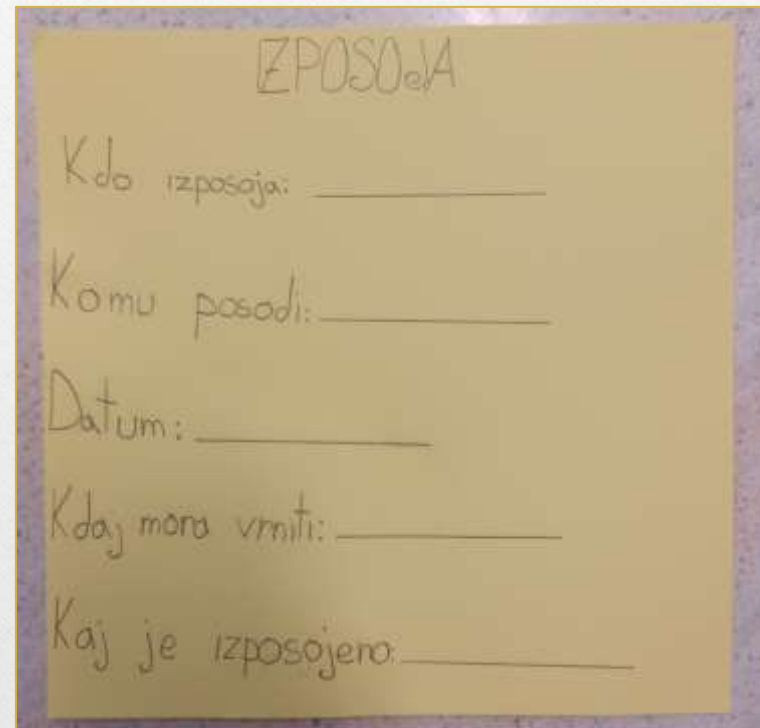 IZPOSOJA
Kdo izposoja: __________
Komu posodi: __________
Datum: __________
Kdaj mora vrniti: __________
Kaj je izposojeno: __________